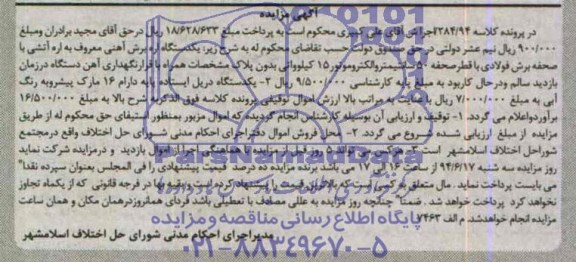 آگهی مزایده
در پرونده کلاسه ۲۸۴/۹۴ اجراش آقای علی کبیری محکوم است به پرداخت مبلغ ۱۸/۶۲۸/۶۳۳ ریال درحق آقای مجید برادران ومبلغ
۹۰۰/۰۰۰ ریال نیم عشر دولتی در حق صندوق دولت حسب تقاضای محکوم له به شرح زیر: یکدستگاه اره برش آهنی معروف به اره آتشی با
صفحه برش فولادی با قطرصفحه ۵۰ سانتیمتروالکتروموتور ۱۵ کیلوواتی بدون پلاک مشخصات همراه با قرارنگهداری آهن دستگاه درزمان
بازدید سالم ودرحال کاربود به مبلغ پایه کارشناسی ۹/۵۰۰/۰۰۰ ریال ۲- یکدستگاه دریل ایستاده پایه دارام ۱۶ مارک پیشروبه رنگ
آبی به مبلغ ۷/۰۰۰/۰۰۰ ریال با عنایت به مراتب بالا ارزش اموال توقیفی پرونده کلاسه فوق الذکربه شرح بالا به مبلغ ۱۶/۵۰۰/۰۰۰
برآورداعلام می گردد. ۱- توقیف و ارزیابی آن بوسیله کارشناس انجام گردیده که اموال مزبور بمنظور استیفای حق محکوم له از طریق
مزایده از مبلغ ارزیابی شده شروع می گردد. ۲- محل فروش اموال دفتراجرای احکام مدنی شورای حل اختلاف واقع درمجتمع
شوراحل اختلاف اسلامشهر است ۳- هرکسی می تواند ۵ روز قبل از مزایده با هماهنگی اجرا از اموال بازدید و درمزایده شرکت نماید
روز مزایده سه شنبه ۹۴/۶/۱۷ از ساعت ۱۶ الی ۱۷ می باشد برنده مزایده ده درصد قیمت پیشنهادی را فی المجلس بعنوان سپرده نقدا"
می بایست پرداخت نماید. مال متعلق به کسی است که بالاترین قیمت را پیشنهاد کرده است وبقیه بها در فرجه قانونی که از یکماه تجاوز
نخواهد کرد پرداخت خواهد شد. ضمنا" چنانچه روز مزایده به عللی مصادف با تعطیلی باشد فردای همانروزدرهمان مکان و همان ساعت
مزایده انجام خواهدشد. م الف ۷۴۶۳
مدیراجرای احکام مدنی شورای حل اختلاف اسلامشهر
ParsNamadData
پایگاه اطلاع رسانی مناقصه و مزایده
۰۲۱-۸۸۳۴۹۶۷۰-۵